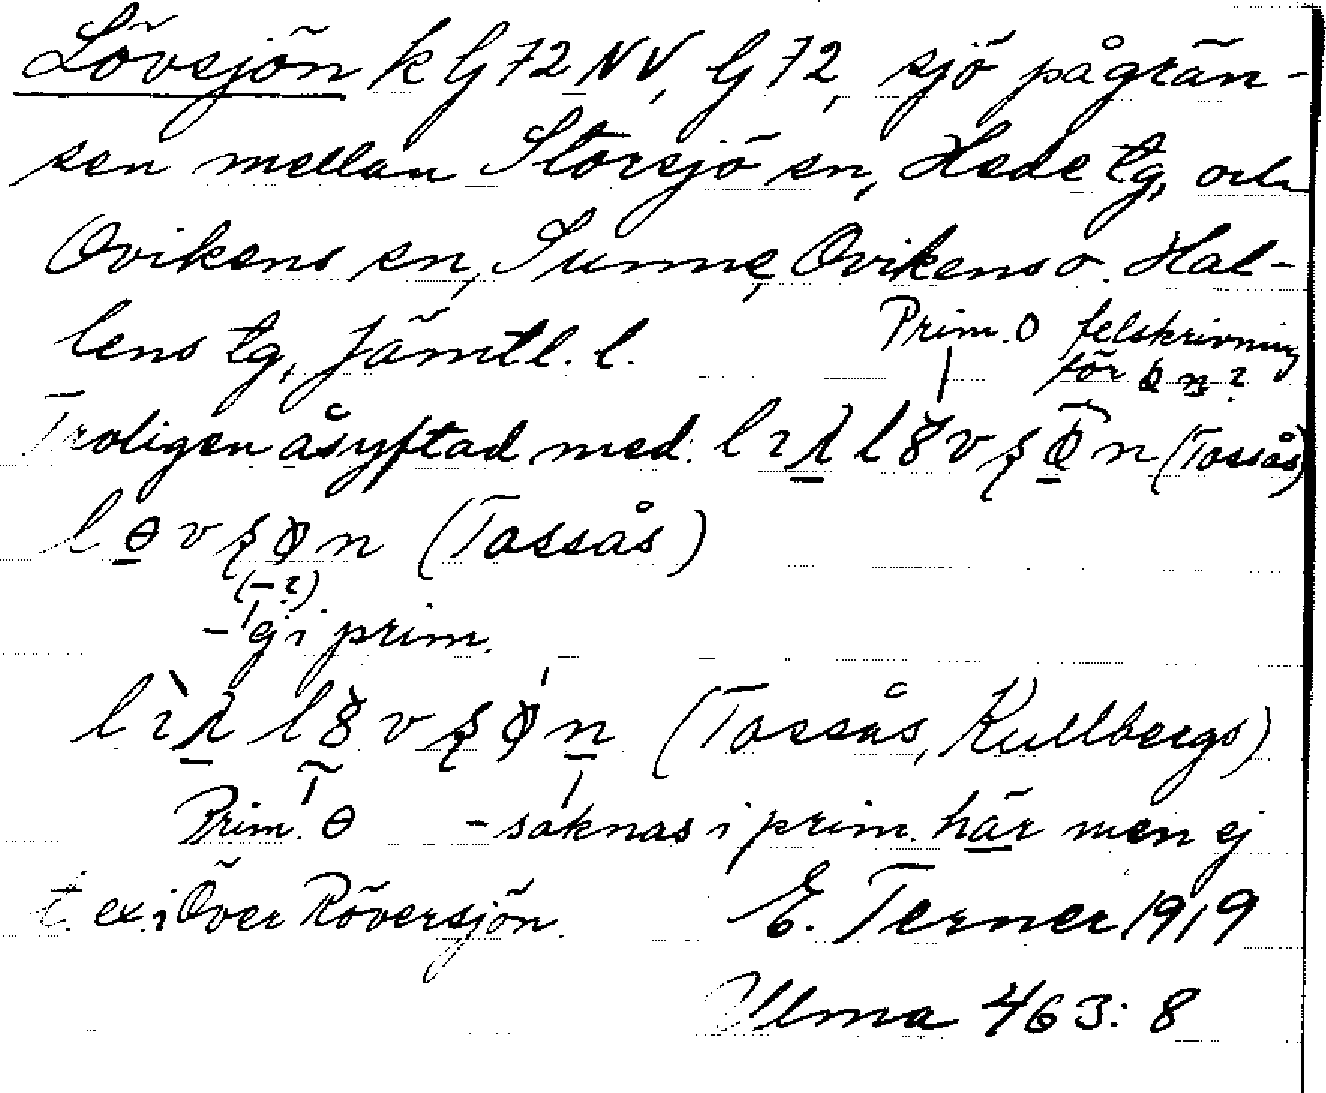 Lövsjön k G 72 NV, G 72, sjö på grän-
sen mellan Storsjö sn, Hede tg, och
Ovikens sn, Sunne, Ovikens o. Hal-
lens tg, Jämtl. l.
Prim. O felskrivning
för n?
Troligen åsyftad med: (Tossås)
løvʂɸn (Tossås)
(-?)
- gj i prim.
(Tossås, Kullbergs)
Prim. ɵ - saknas i prim. här men ej
t. ex. i Över Röversjön.
E. Terner 1919
Ulma 463: 8